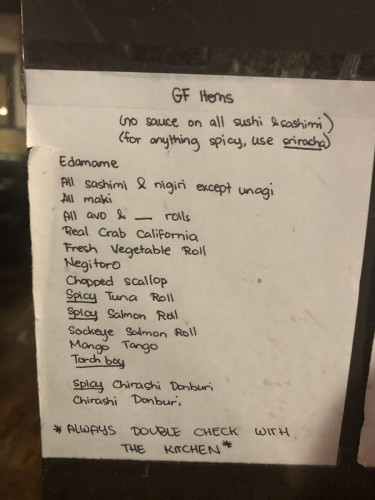 GF Items
(no sauce on all sushi & sashimi)
(for anything spicy, use sriracha)
Edamame
All sashimi & nigiri except unagi
All maki
All avo & __ rolls
Real Crab California
Fresh Vegetable Roll
Negitoro
Chopped scallop
Spicy Tuna Roll
Spicy Salmon Roll
Sockeye Salmon Roll
Mango Tango
Torch boy
Spicy Chirashi Donburi
Chirashi Donburi
*ALWAYS DOUBLE CHECK WITH
THE KITCHEN*